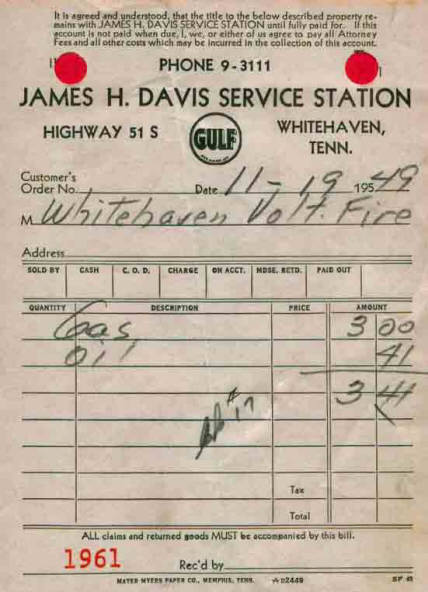 It is agreed and understood, that the title to the below described property re-
mains with JAMES H. DAVIS SERVICE STATION until fully paid for. If this
account is not paid when due, I, we, or either of us agree to pay all Attorney
Fees and all other costs which may be incurred in the collection of this account.
PHONE 9-3111
JAMES H. DAVIS SERVICE STATION
HIGHWAY 51 S
GULF
WHITEHAVEN,
TENN.
Customer's
Order No. Date 11-19 195 49
M Whitehaven Volt. Fire
Address
SOLD BY CASH C. O. D. CHARGE ON ACCT. MDSE. RETD. PAID OUT
QUANTITY DESCRIPTION PRICE AMOUNT
Gas 3 00
Oil 41
3 41
#17
Tax
Total
ALL claims and returned goods MUST be accompanied by this bill.
1961
Rec'd by
MAYER MYERS PAPER CO., MEMPHIS, TENN. D2449